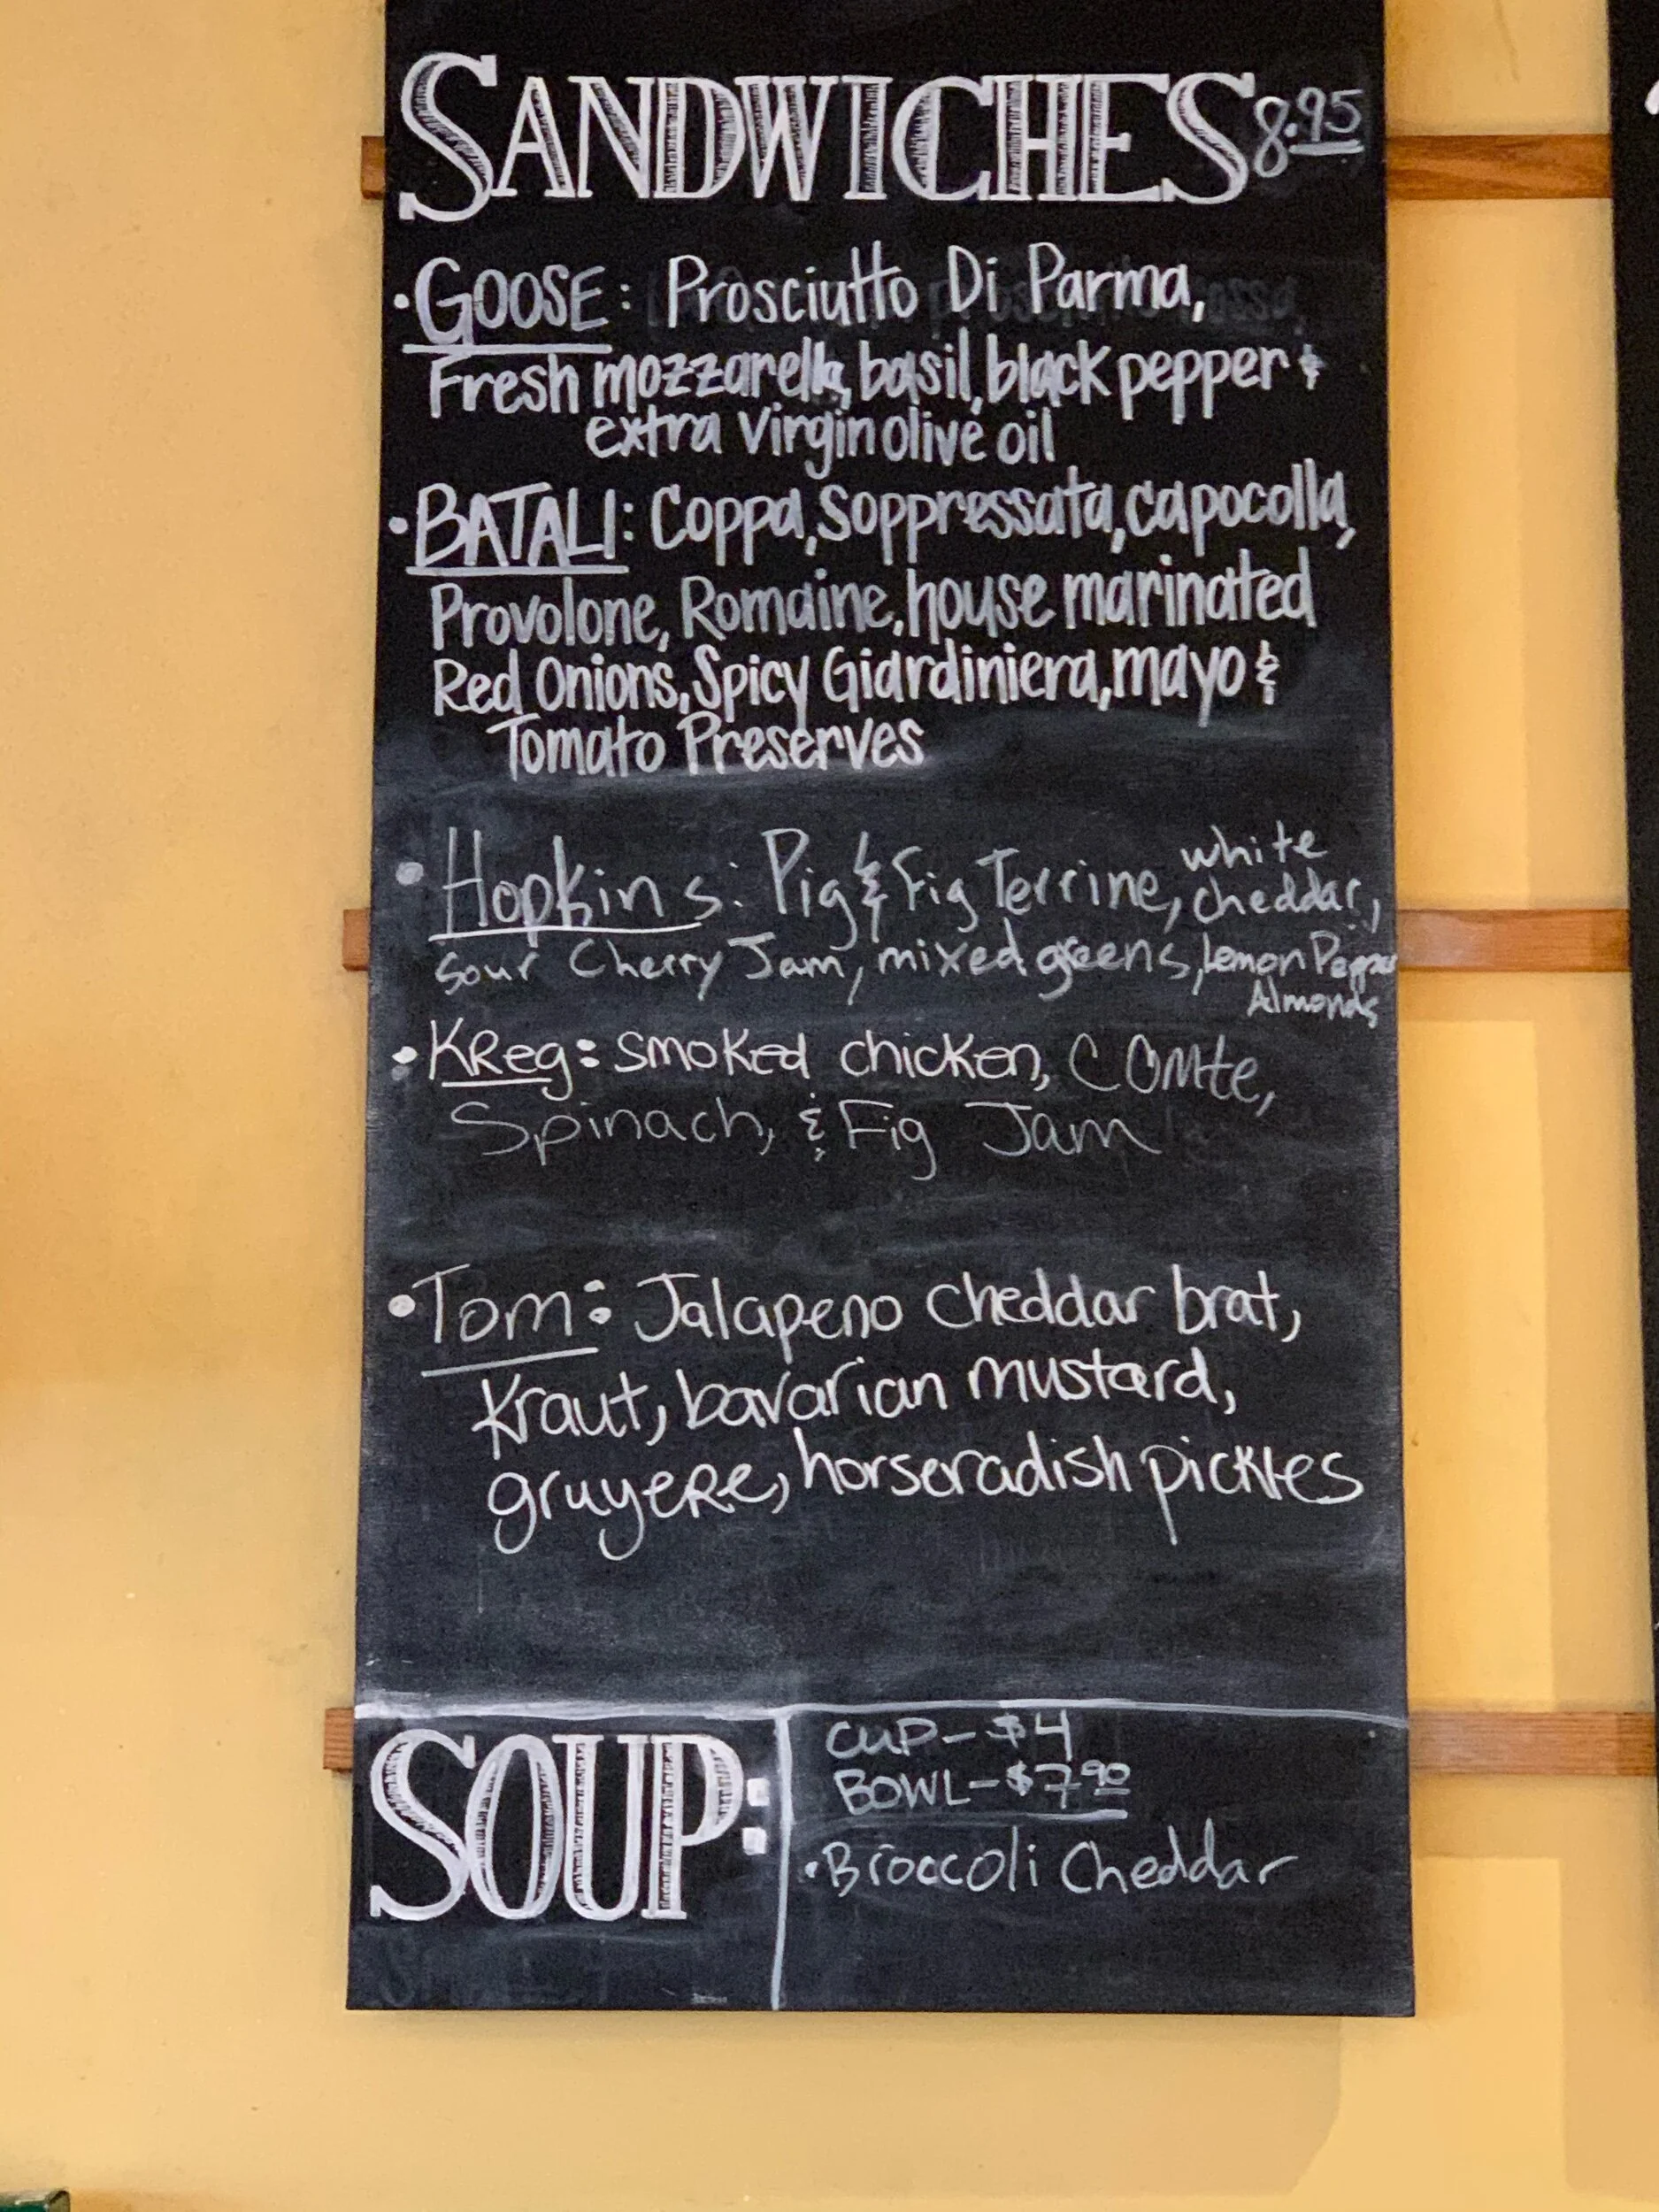 SANDWICHES 8.95
• GOOSE: Prosciutto Di Parma,
Fresh mozzarella, basil, black pepper &
extra virgin olive oil
• BATALI: Coppa, Soppressata, capocolla,
Provolone, Romaine, house marinated
Red Onions, Spicy Giardiniera, mayo &
Tomato Preserves
• Hopkins: Pig & Fig Terrine, white cheddar,
Sour Cherry Jam, mixed greens, Lemon Pepper
Almonds
• KReg: smoked chicken, Comte,
Spinach, & Fig Jam
• Tom: Jalapeno cheddar brat,
Kraut, bavarian mustard,
gruyeRe, horseradish pickles
SOUP:
CUP - $4
BOWL - $7.90
• Broccoli Cheddar